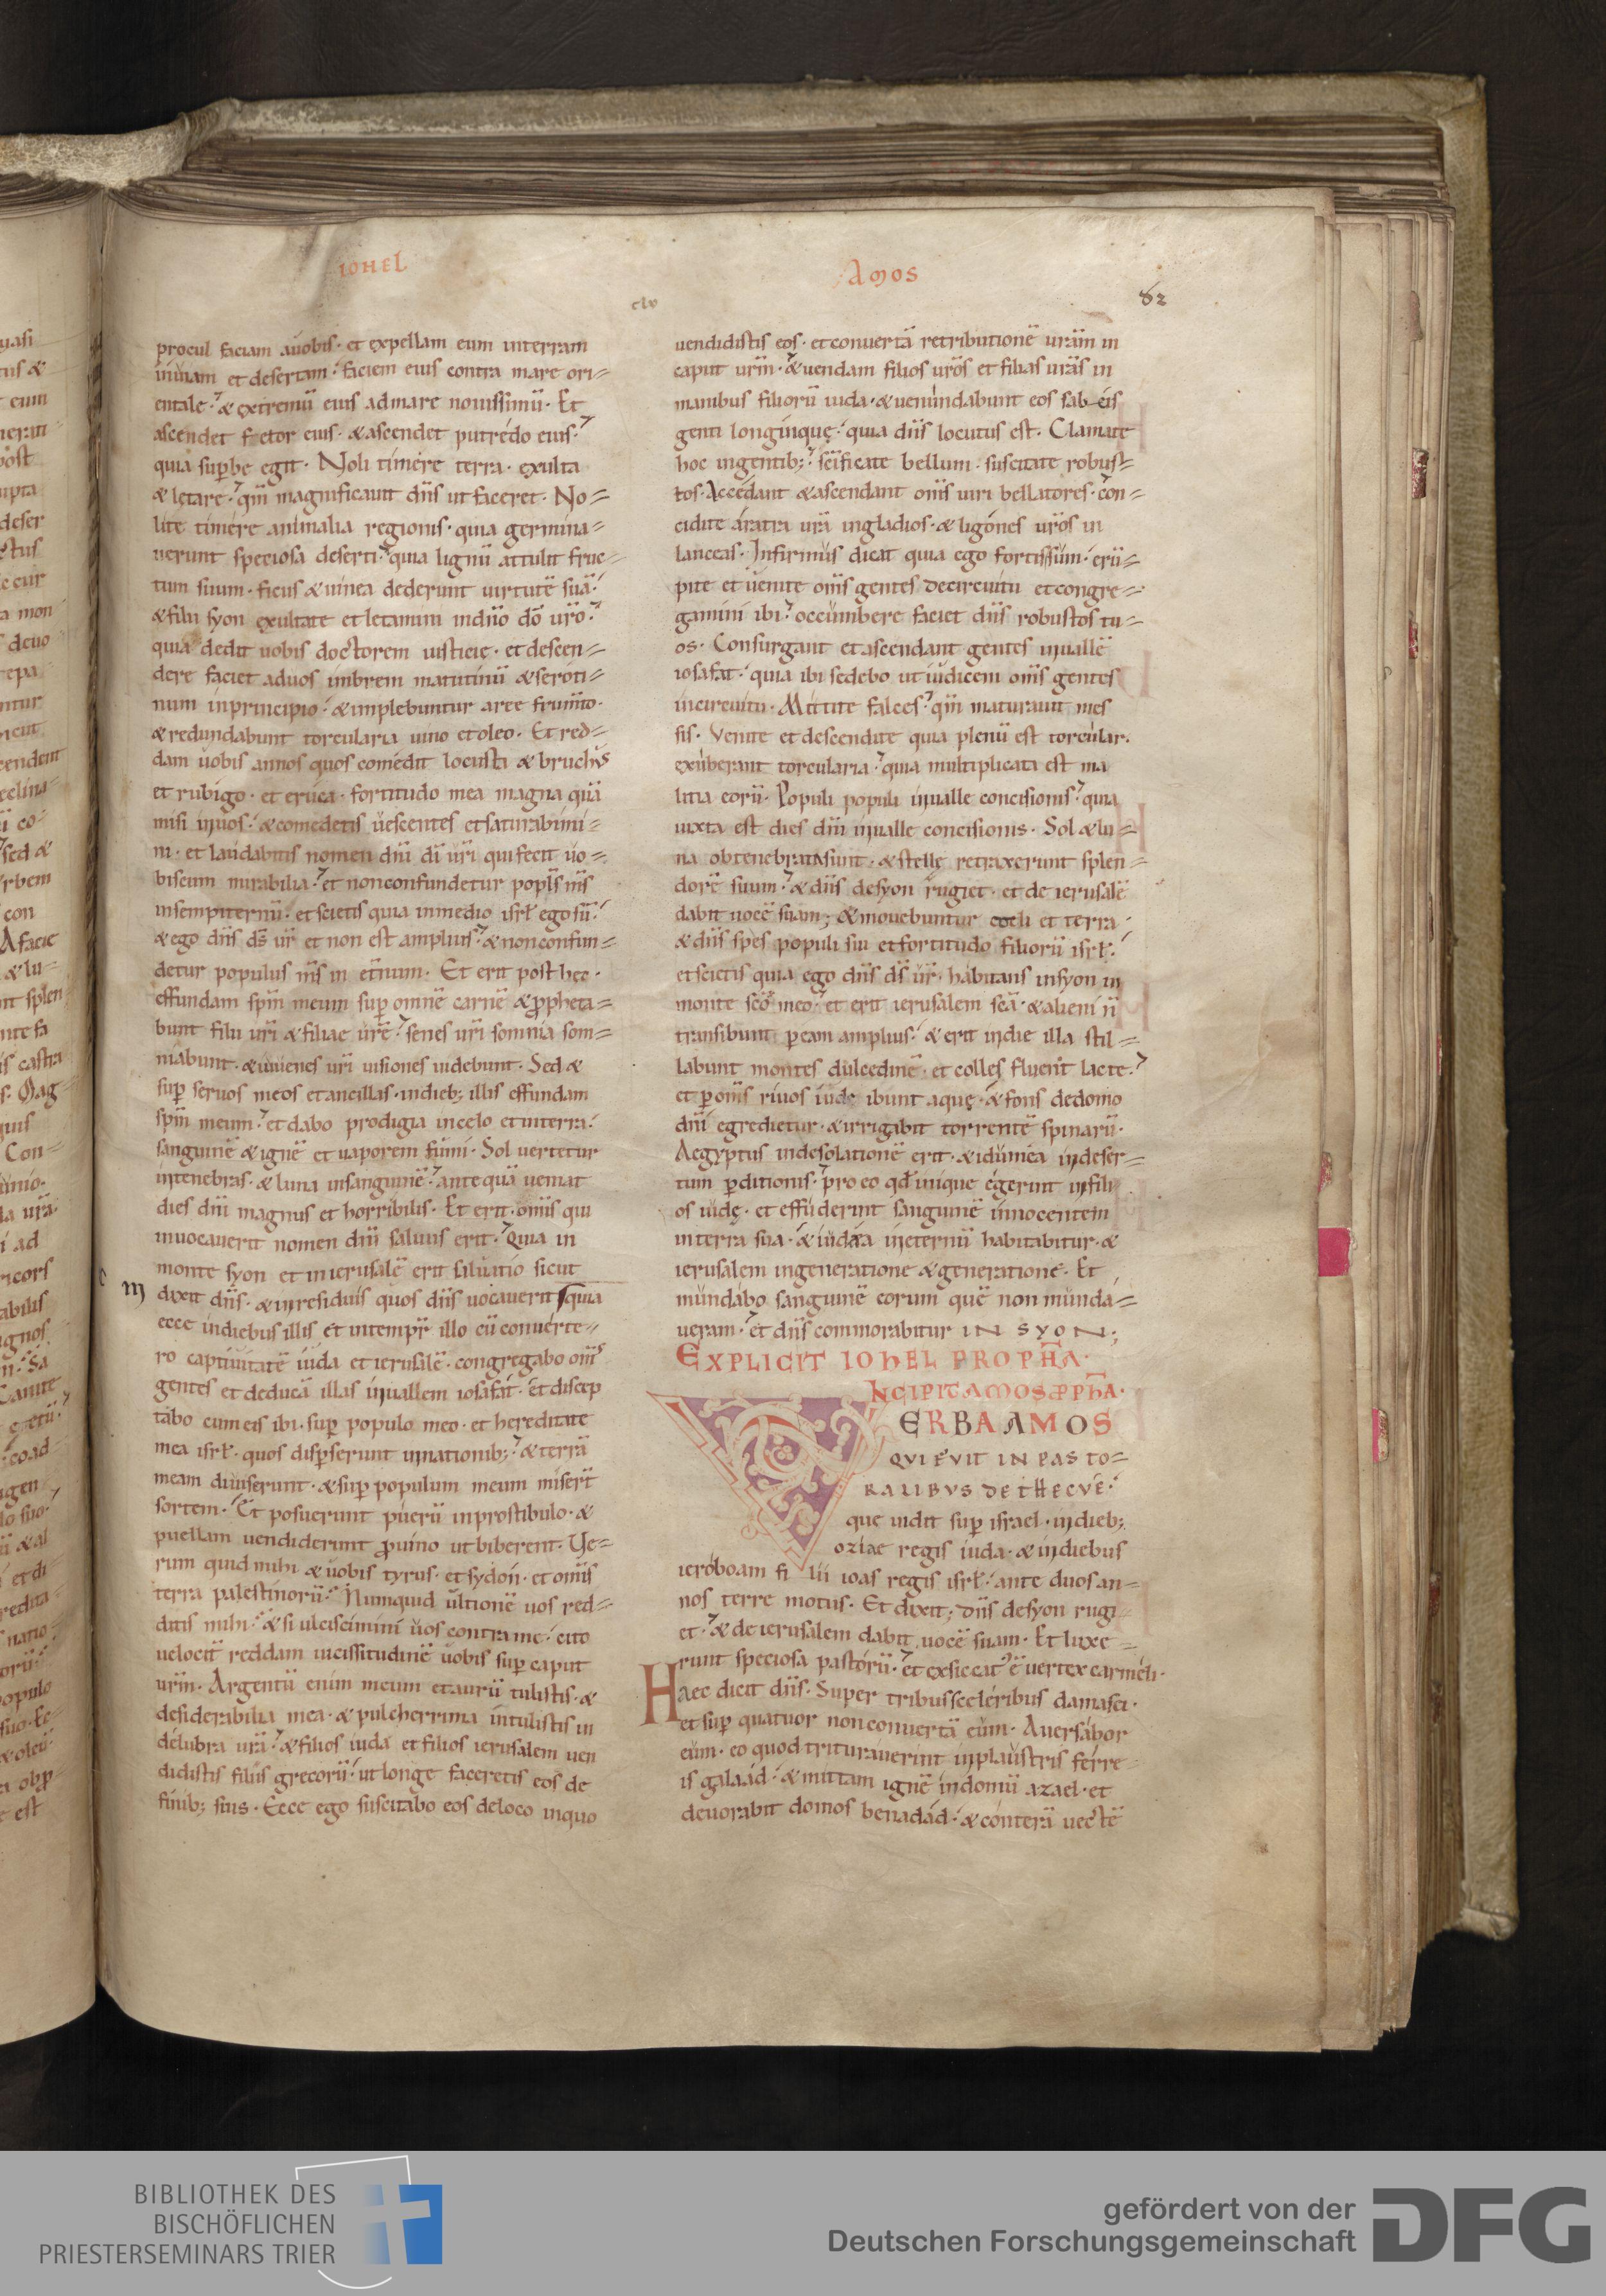 IOHEL
AMOS
clv
82
procul faciam auobis· et expellam eum interram
inuiam et desertam· faciem eius contra mare ori=
entale· & extremū eius admare nouissimū· Et
ascendet foetor eius· & ascendet putredo eius·
quia suꝑbe egit· Noli timere terra· exulta
& letare· qm̄ magnificauit dn̄s ut faceret· No=
lite timere animalia regionis· quia germina=
uerunt speciosa deserti· quia lignū attulit fruc=
tum suum· ficus & uinea dederunt uirtutē suā·
& filii syon exultate et letamini indn̄o dō ur̄o·
quia dedit uobis doctorem iusticię· et descen=
dere faciet aduos imbrem matutinū & seroti=
num inprincipio· & implebuntur aree frum̄to·
& redundabunt torcularia uino et oleo· Et red=
dam uobis annos quos comedit locusta & bruchus
et rubigo· et eruca· fortitudo mea magna quā
misi inuos· & comedetis uescentes et saturabimi=
ni· et laudabitis nomen dn̄i dī ur̄i qui fecit uo=
biscum mirabilia· et nonconfundetur popl̄s m̄s
insempiternū· et scietis quia inmedio isrl̄ ego sū·
& ego dn̄s ds̄ ur̄ et non est amplius· & nonconfun=
detur populus m̄s in et̄num· Et erit post hec·
effundam spm̄ meum suꝑ omnē carnē & ꝓpheta=
bunt filii ur̄i & filiae ur̄e· senes ur̄i somnia som=
niabunt· & iuuenes ur̄i uisiones uidebunt· Sed &
suꝑ seruos meos et ancillas· indieb; illis effundam
spm̄ meum· et dabo prodigia incelo et interra·
sanguinē & ignē et uaporem fumi· Sol uertetur
intenebras· & luna insanguinē· ante quā ueniat
dies dn̄i magnus et horribilis· Et erit· omīs qui
inuocauerit nomen dn̄i saluus erit· Quia in
monte syon et in ierusalē erit saluatio sicut
m dixit dn̄s· & inresiduis quos dn̄s uocauerit quia
ecce indiebus illis et intemp̄r illo cū conuerte=
ro captiuitatē iuda et ierusalē· congregabo om̄s
gentes et deducā illas inuallem iosafat· et discep
tabo cum eis ibi· suꝑ populo meo· et hereditate
mea isrl̄· quos disꝑserunt innationib;· & terrā
meam diuiserunt· & suꝑ populum meum misert̄
sortem· Et posuerunt puerū inprostibulo· &
puellam uendiderunt ꝓuino ut biberent· Ve=
rum quid mihi & uobis tyrus· et sydon· et omīs
terra palestinorū· Numquid ultionē uos red=
ditis mihi· & si ulciscimini uos contra me· cito
uelocit̄ reddam uicissitudinē uobis suꝑ caput
ur̄m· Argentū enim meum et aurū tulistis· &
desiderabilia mea· & pulcherrima intulistis in
delubra ur̄a· & filios iuda et filios ierusalem uen
didistis filiis grecorū· ut longe faceretis eos de
finib; suis· Ecce ego suscitabo eos deloco inquo
uendidistis eos· et conuertā retributionē ur̄am in
caput ur̄m· & uendam filios ur̄os et filias ur̄as in
manibus filiorū iuda· & uenundabunt eos sabeis
genti longinquę· quia dn̄s locutus est· Clamate
hoc ingentib;· sc̄ificate bellum· suscitate robus=
tos· Accedant & ascendant om̄s uiri bellatores· con=
cidite aratra ur̄a ingladios· & ligones ur̄os in
lanceas· Infirmus dicat quia ego fortis sum· erū=
pite et uenite om̄s gentes decircuitu et congre=
gamini ibi· occumbere faciet dn̄s robustos tu=
os· Consurgant et ascendant gentes inuallē
iosafat· quia ibi sedebo ut iudicem om̄s gentes
incircuitu· Mittite falces· qm̄ maturauit mes
sis· Venite et descendite quia plenū est torcular·
exuberant torcularia· quia multiplicata est ma
litia eorū· Populi populi inualle concisionis· quia
iuxta est dies dn̄i inualle concisionis· Sol & lu=
na obtenebrati sunt· & stellę retraxerunt splen=
dorē suum· & dn̄s desyon rugiet· et de ierusalē
dabit uocē suam; & mouebuntur coeli et terra·
& dn̄s spes populi sui et fortitudo filiorū isrl̄·
et scietis quia ego dn̄s ds̄ ur̄· habitans insyon in
monte sc̄o meo· et erit ierusalem sc̄a· & alieni n̄
transibunt ꝑ eam amplius· & erit indie illa stil=
labunt montes dulcedinē· et colles fluent lacte·
et ꝑ om̄s riuos iude ibunt aquę· & fons dedomo
dn̄i egredietur· & irrigabit torrentē spinarū·
Aegyptus indesolationē erit· & idumea indeser=
tum ꝑditionis· pro eo qd̄ inique egerint infili
os iudę· et effuderint sanguinē innocentem
interra sua· & iudaea ineternū habitabitur· &
ierusalem ingeneratione & generationē· Et
mundabo sanguinē eorum quē non munda=
ueram· et dn̄s commorabitur IN SYON;
EXPLICIT IOHEL PROPHA·
INCIPIT AMOS PPHA·
VERBA AMOS
QVI FVIT IN PASTO=
RALIBVS DE THECVE·
que uidit suꝑ israel· indieb;
oziae regis iuda· & indiebus
ieroboam fi lii ioas regis isrl̄· ante duos an=
nos terre motus· Et dixit; dn̄s desyon rugi
et· & de ierusalem dabit uocē suam· Et luxe=
runt speciosa pastorū· et exsiccatus ē uertex carmeli·
Haec dicit dn̄s· Super tribus sceleribus damasci·
et suꝑ quatuor nonconuertā eum· Auersabor
eum· eo quod triturauerint inplaustris ferre=
is galaad· & mittam ignē indomū azael· et
deuorabit domos benadad· & conterā uectē
BIBLIOTHEK DES
BISCHÖFLICHEN
PRIESTERSEMINARS TRIER
gefördert von der
Deutschen Forschungsgemeinschaft
DFG